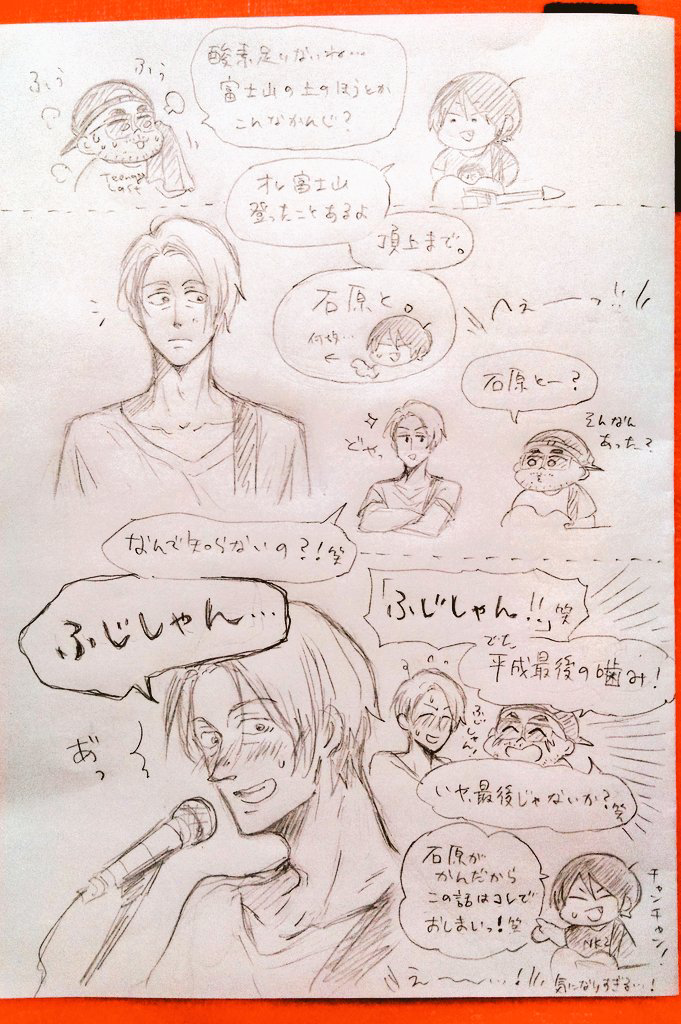 酸素足りないね…
富士山の上のほうとか
こんなかんじ?
ふぅぅ
ふぅぅ
Teenage
Last
オレ富士山
登ったことあるよ
頂上まで。
石原と。
何故…
へぇーーっ!!
石原とー?
そんなん
あった?
どやっ
なんで知らないの?!笑
ふじしゃん…
あっ
「ふじしゃん!!」笑
でた
平成最後の噛み!
ふじしゃん!
いや、最後じゃないか?笑
石原が
かんだから
この話はコレで
おしまいっ!笑
チャンチャン!
NKZ
え〜〜…!!
気になりすぎるっ…!